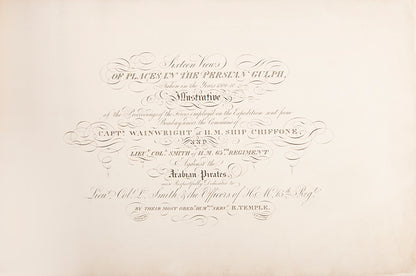 Sixteen Views
OF PLACES IN THE PERSIAN GULPH,
Taken in the Years 1809-10
Illustrative
of the Proceedings of the Force employed on the Expedition sent from
Bombay under the Command of
CAPTN. WAINWRIGHT of H.M. SHIP CHIFFONE,
AND
LIEUT. COLL. SMITH of H.M. 65TH REGIMENT
Against the
Arabian Pirates
most Respectfully Dedicated to
Lieut. Coll. L. Smith & the Officers of His M. 65th. Regt.
BY THEIR MOST OBEDT. HUMBLE SERVT. R. TEMPLE.